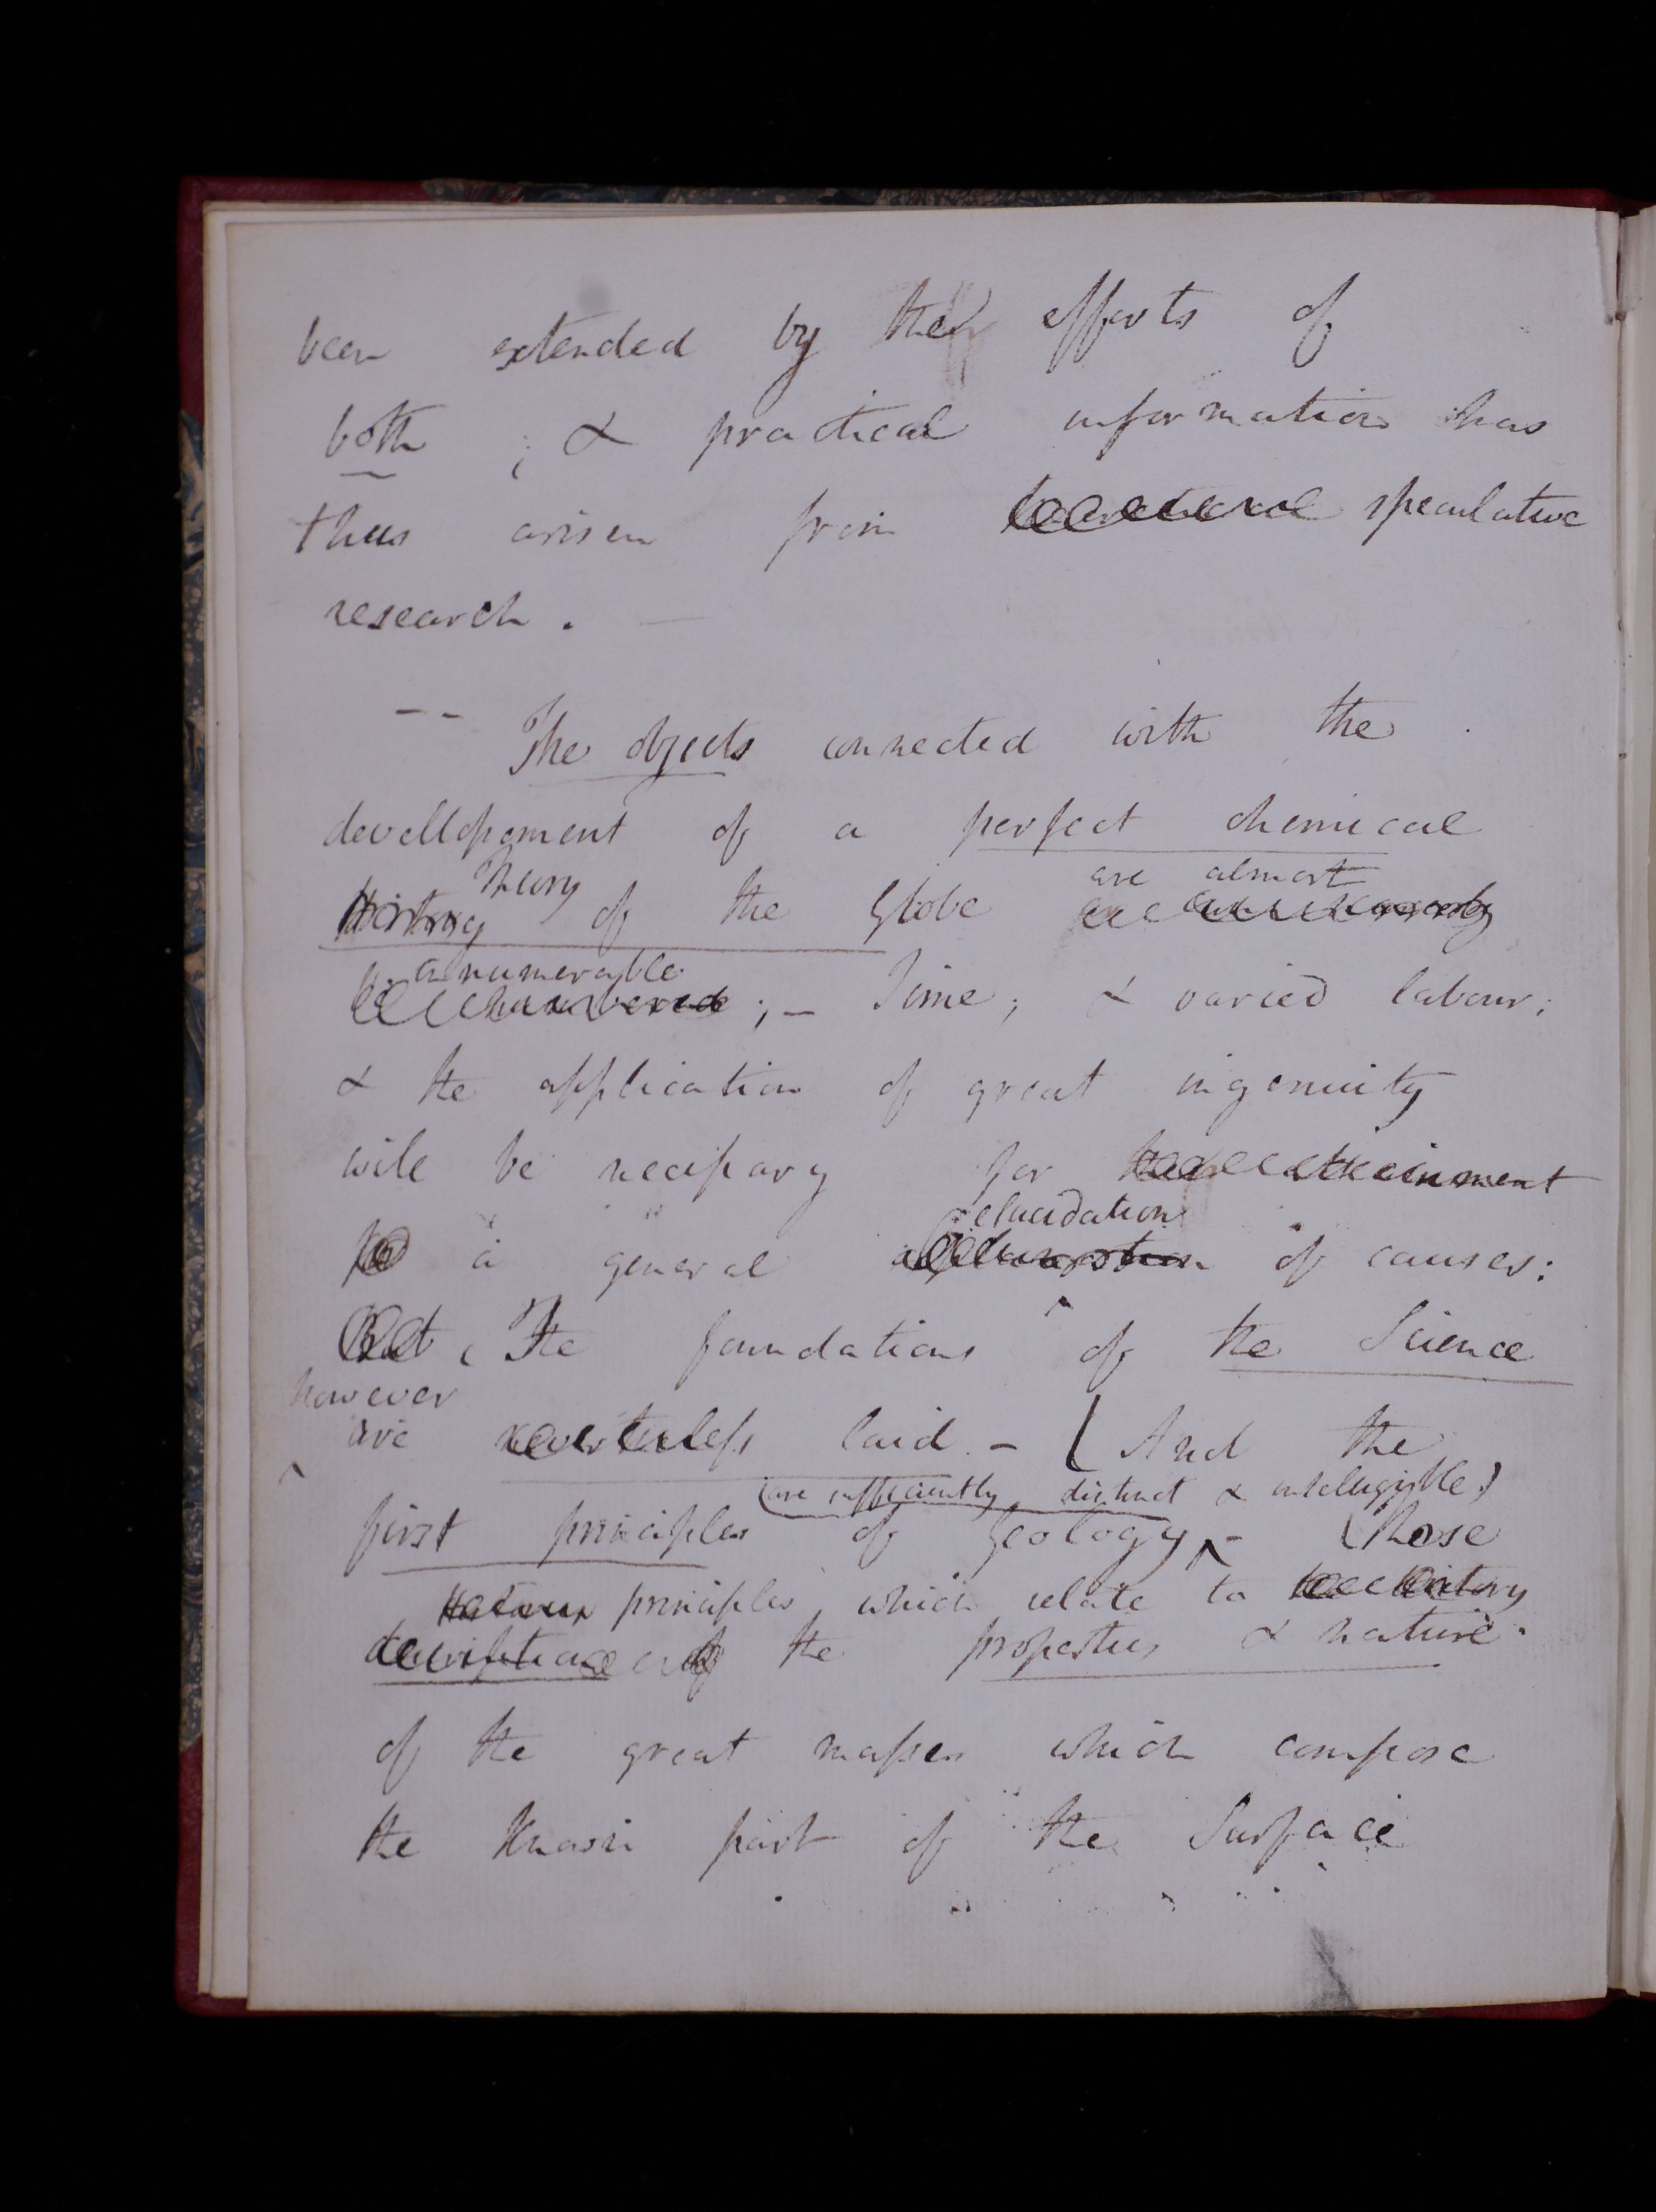 been extended by the efforts of
both ; & practical information has
thus arisen from speculative
research. —
-- The objects connected with the
devellopement of a perfect chemical
Theory
History of the Globe
are almost
innumerable
;– Time; & varied labour;
& the application of great ingenuity
will be necessary for attainment
elucidation
a general of causes:
But, The foundations of the Science
however
are nevertheless laid. – (And the
(are sufficiently distinct & intelligible)
first principles of Geology – (Those
principles which relate to history
description of the properties & nature
of the great masses which compose
the Known part of the Surface